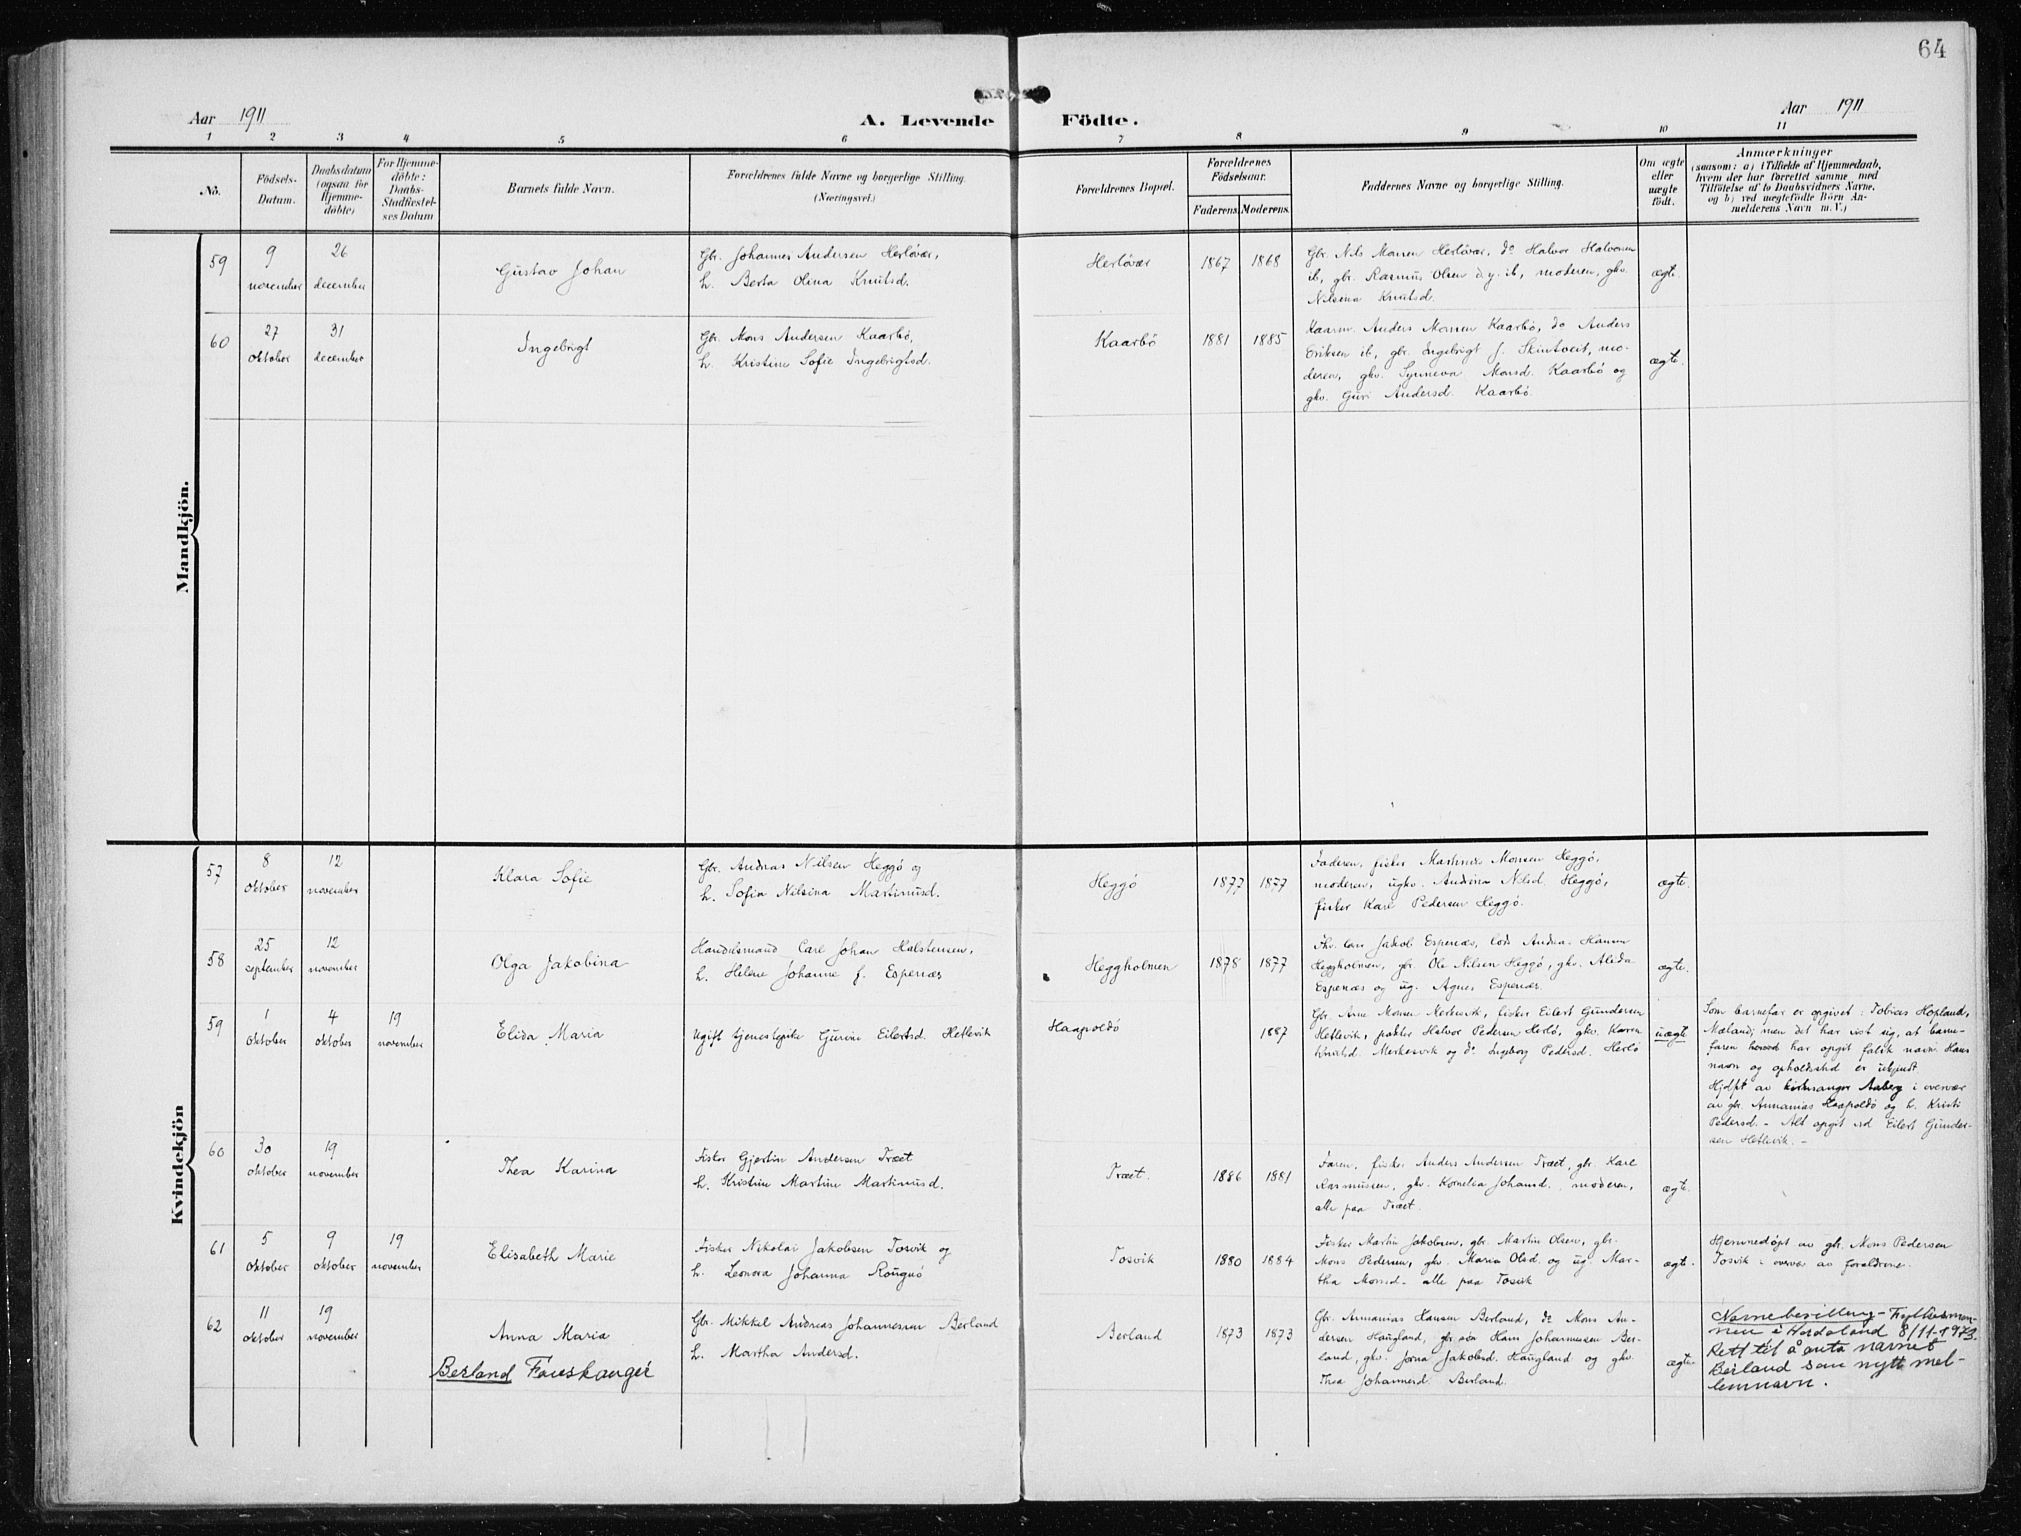 64
Aar 1911
A. Levende Födte.
Aar 1911
1 2 3 4 5 6 7 8 9 10 11
No.
Födsels-
Datum.
Daabsdatum
(ogsaa for
Hjemme-
döbte)
For Hjemme-
döbte:
Daabs-
Stadfæstel-
ses Datum
Barnets fulde Navn.
Forældrenes fulde Navne og borgerlige Stilling.
(Næringsvei.)
Forældrenes Bopæl.
Forældrenes
Födselsaar.
Faderens. Moderens.
Faddernes Navne og borgerlige Stilling.
Om ægte
eller
uægte
födt.
Anmærkninger
(saasom: a) i Tilfælde af Hjemmedaab,
hvem der har forrettet samme med
Tilföielse af to Daabsvidners Navne,
og b) ved uægtefödte Börn An-
melderens Navn m. V.)
Mandkjön.
59
9
november
26
december
Gustav Johan
Gbr. Johannes Andersen Herløvær,
h. Berta Olina Knutsd.
Herløvær
1867 1868
Gbr. Nils Monsen Herløvær, do Halvor Halvorsen
ib, gbr. Rasmus Olsen d.y. ib, moderen, gkv.
Nilsina Knutsd.
ægte.
60
27
oktober
31
december
Ingebrigt
Gbr. Mons Andersen Kaarbø,
h. Kristine Sofie Ingebrigtsd.
Kaarbø
1881 1885
Kaarm. Anders Monsen Kaarbø, do Anders
Eriksen ib, gbr. Ingebrigt J. Skintveit, mo-
deren, gkv. Synneva Monsd. Kaarbø og
gkv. Guri Andersd. Kaarbø.
ægte.
Kvindekjön
57
8
oktober
12
november
Klara Sofie
Gbr. Andreas Nilsen Heggø og
h. Sofia Nilsina Martinusd.
Heggø
1877 1877
Faderen, fisker Martinus Monsen Heggø,
moderen, ugkv. Andrina Nilsd. Heggø,
fisker Karl Pedersen Heggø.
ægte.
58
25
september
12
november
Olga Jakobina
Handelsmand Carl Johan Halstensen,
h. Helene Johanne f. Espenæs
Heggholmen
1878 1877
Jakob Espenæs, lods Andreas Hansen
Heggholmen, gbr. Ole Nilsen Heggø, gkv. Alida
Espenæs og ug. Agnes Espenæs.
ægte.
59
1
oktober
4
oktober
19
november
Elida Maria
Ugift tjenestepike Gurine Eilertsd. Hetlevik
Haapoldø
1887
Gbr. Arne Monsen Merkesvik, fisker Eilert Gundersen
Hetlevik, Halvor Pedersen Herlø, gkv. Karen
Knutsd. Merkesvik og do Ingeborg Pedersd. Herlø
uægte
Som barnefar er opgivet: Tobias Hopland,
Mæland; men det har vist sig, at barne-
faren har opgit falsk navn. Hans
navn og opholdssted er ukjendt.
Hjdpt av kirkesanger Aaberg i overvær
av gbr. Annanias Haapoldø og h. Kristi
Pedersd. – Alt opgit ved Eilert Gunder-
sen Hetlevik. –
60
30
oktober
19
november
Thea Karina
Fisker Gjertin Andersen Træet
h. Kristine Martine Martinusd.
Træet.
1886 1881
Faren, fisker Anders Andersen Træet, gbr. Karl
Rasmussen, gkv. Kornelia Johansd., moderen,
alle paa Træet.
ægte.
61
5
oktober
9
oktober
19
november
Elisabeth Marie
Fisker Nikolai Jakobsen Tosvik og
h. Leonora Johanna Rougnø
Tosvik
1880 1884
Fisker Martin Jakobsen, gbr. Martin Olsen, gbr.
Mons Pedersen, gkv. Maria Olsd. og ug. Mar-
tha Monsd. alle paa Tosvik
ægte.
Hjemmedøpt av gbr. Mons Pedersen
Tosvik i overvær av forældrene.
62
11
oktober
19
november
Anna Maria
Berland Fauskanger
Gbr. Mikkel Andreas Johannessen Berland
h. Martha Andersd.
Berland
1873 1873
Gbr. Annanias Hansen Berland, do Mons An-
dersen Haugland, gbr.søn Hans Johannessen Ber-
land, gkv. Jakobsd. Haugland og gkv.
Thea Johannesd. Berland.
ægte.
Navnebevilling – Fylkesman-
nen i Hordaland 8/11-1973.
Rett til å anta navnet
Berland som nytt mel-
lemnavn.